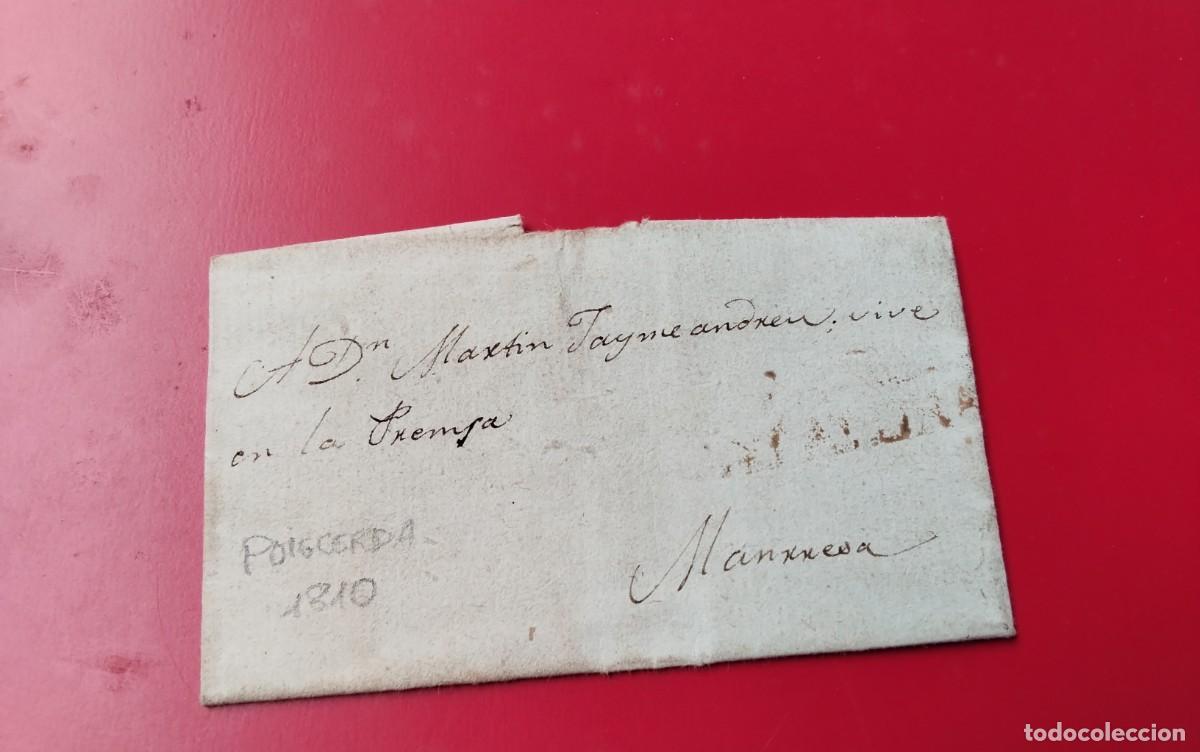 A Dn. Martin Jayme andreu; vive
en la Premsa
Manrresa
POIGCERDA -
1810
todocoleccion